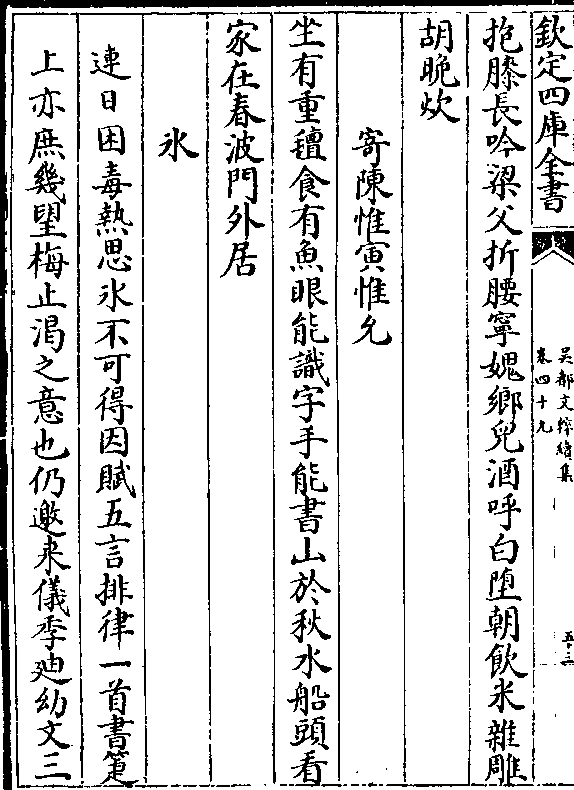 欽定四庫全書
吴都文粹續集
卷四十九
五十三
抱膝長吟梁父折腰寧媿鄉兒酒呼白堕朝飲米雜雕
胡晚炊
寄陳惟寅惟允
坐有重氊食有魚眼能識字手能書山於秋水船頭看
家在春波門外居
氷
連日困毒熱思氷不可得因賦五言排律一首書箑
上亦庶幾望梅止渴之意也仍邀来儀季廸幼文三